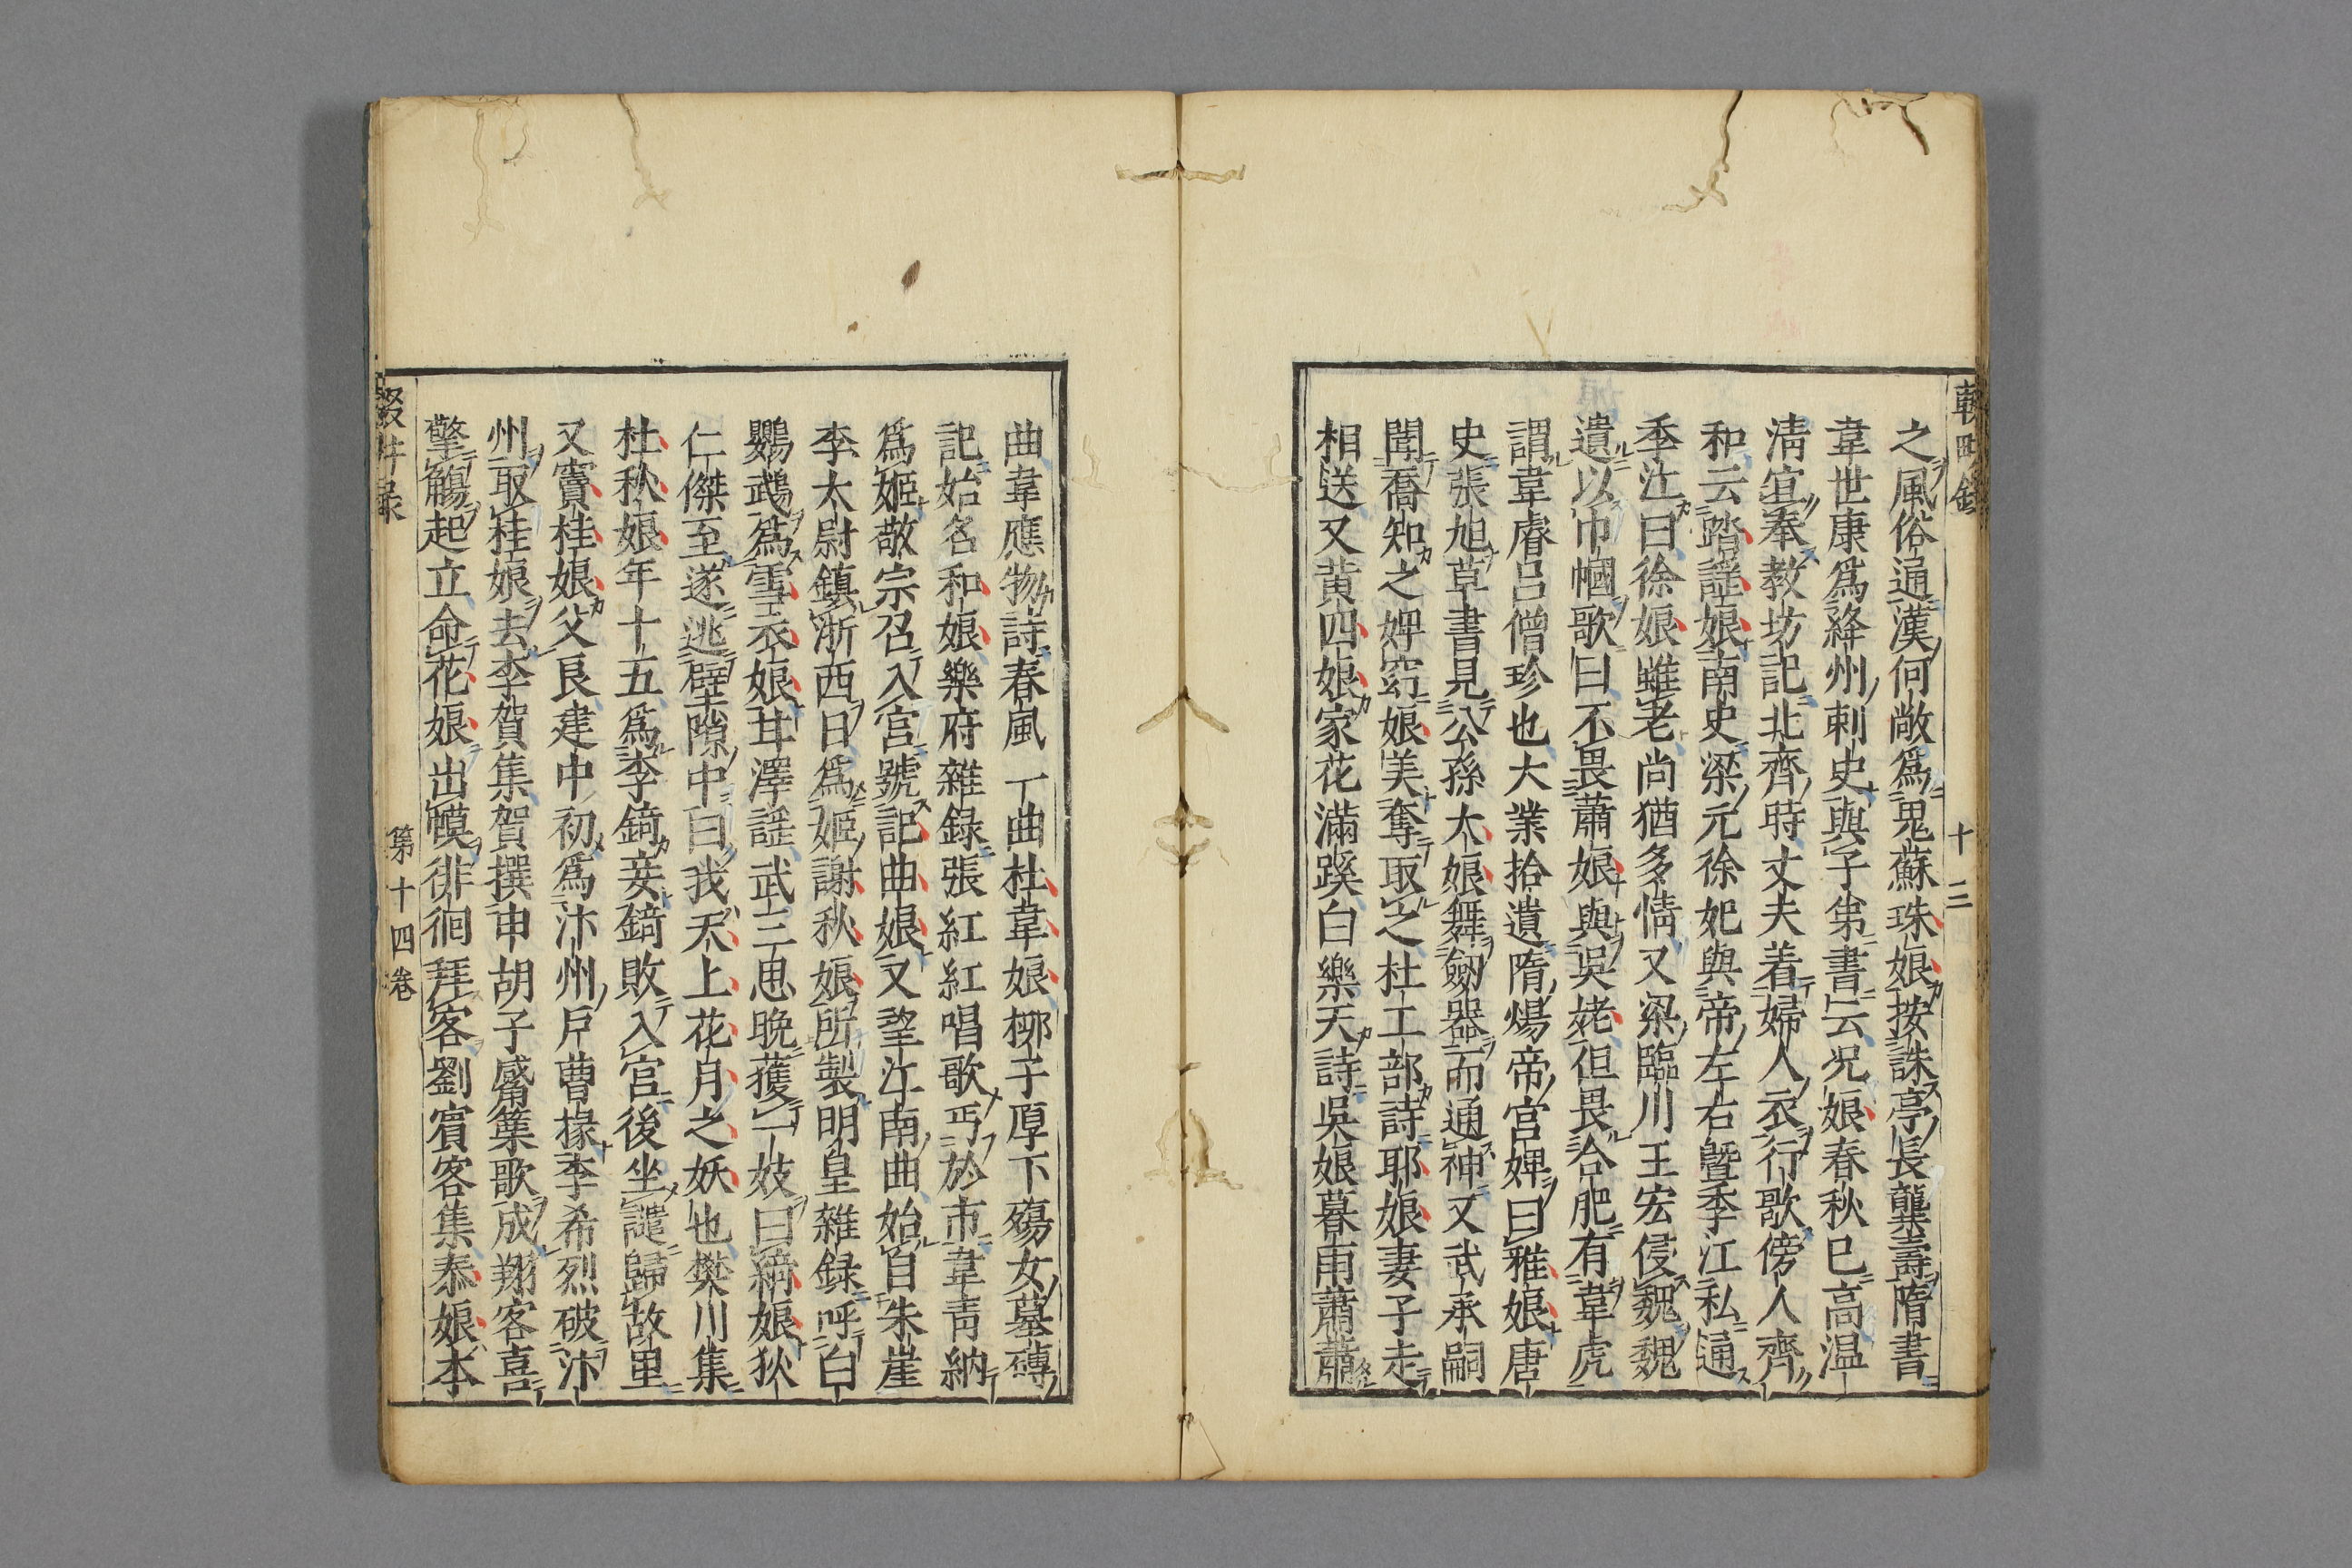 之風俗通漢何敞爲鬼蘇珠娘按誅亭長龔壽隋書
韋世康爲絳州刺史與子弟書云况娘春秋巳高温
淸宜奉教坊記北齊時丈夫着婦人衣行歌傍人齊
和云踏謡娘南史梁元徐妃與帝左右曁季江私通
季江曰徐娘雖老尚猶多情又梁臨川王宏侵魏魏
遺以巾幗歌曰不畏蕭娘與呉姥但畏合肥有韋虎
謂韋睿呂僧珍也大業拾遺隋煬帝宮婢曰雅娘唐
史張旭草書見公孫大娘舞劒器而通神又武承嗣
聞喬知之婢窈娘美奪取之杜工部詩耶娘妻子走
相送又黄四娘家花滿蹊白樂天詩吳娘暮雨蕭蕭
曲韋應物詩春風一曲杜韋娘桺子厚下殤女墓磚
記始名和娘樂府雜錄張紅紅唱歌丐於市韋靑納
爲姬敬宗召入宮號記曲娘又望江南曲始自朱崖
李太尉鎮浙西日爲姬謝秋娘所製明皇雜録呼白
鸚鵡爲雪衣娘甘澤謡武三思晩獲一妓曰綺娘狄
仁傑至遂逃壁隙中曰我天上花月之妖也樊川集
杜秋娘年十五爲李錡妾錡敗入宮後坐譴歸故里
又竇桂娘父良建中初爲汴州戸曹掾李希烈破汴
州取桂娘去李賀集賀撰申胡子觱篥歌成翔客喜
擎觴起立命花娘出幙徘徊拜客劉賓客集泰娘本
輟畊錄
十三
輟畊録
第十四巻